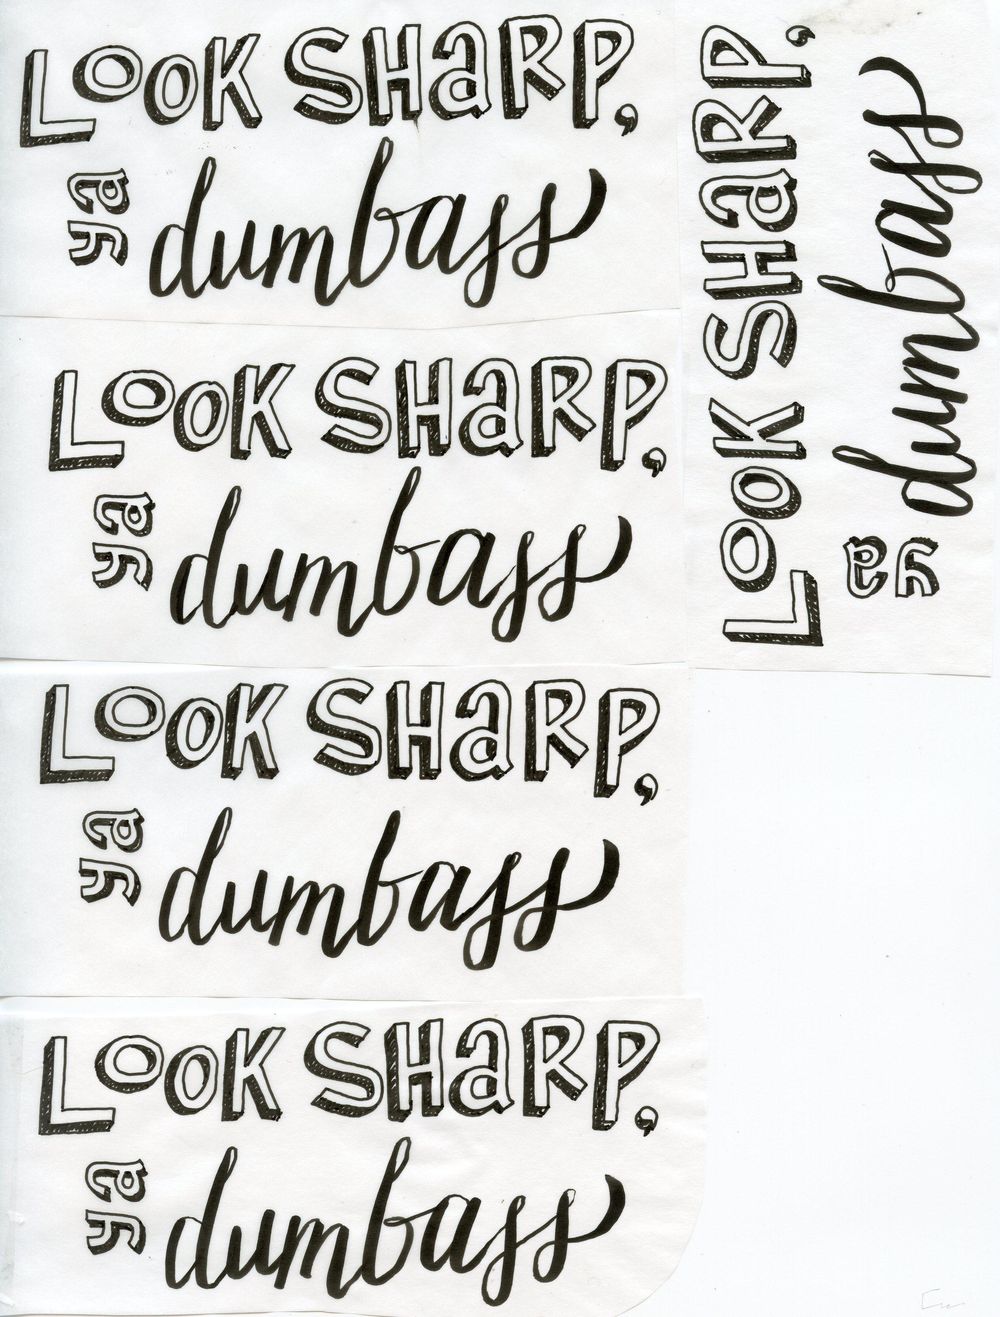 LOOK SHARP,
ya dumbass
LOOK SHARP,
ya dumbass
LOOK SHARP,
ya dumbass
LOOK SHARP,
ya dumbass
LOOK SHARP,
ya dumbass